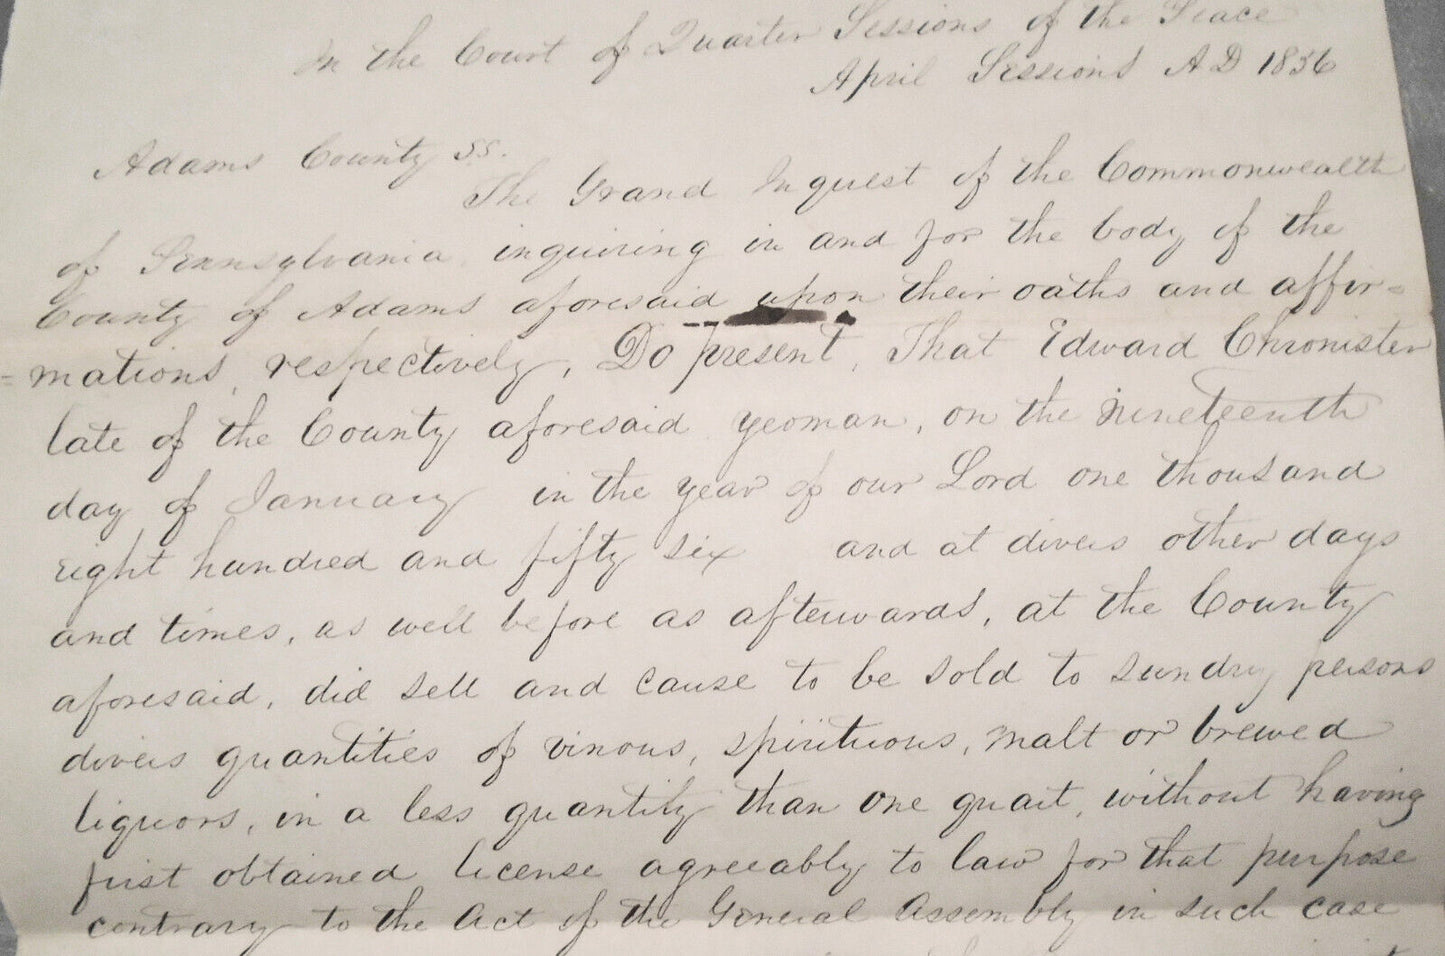 In the Court of Quarter Sessions of the Peace
April Sessions A D 1856
Adams County ss.
The Grand Inquest of the Commonwealth
of Pennsylvania inquiring in and for the body of the
County of Adams aforesaid upon their oaths and affir=
=mations, respectively, Do present, That Edward Chronister
late of the County aforesaid yeoman, on the nineteenth
day of January in the year of our Lord one thousand
eight hundred and fifty six and at divers other days
and times, as well before as afterwards, at the County
aforesaid, did sell and cause to be sold to sundry persons
divers quantities of vinous, spirituous, malt or brewed
liquors, in a less quantity than one quart, without having
first obtained license agreeably to law for that purpose
contrary to the Act of the General Assembly in such case